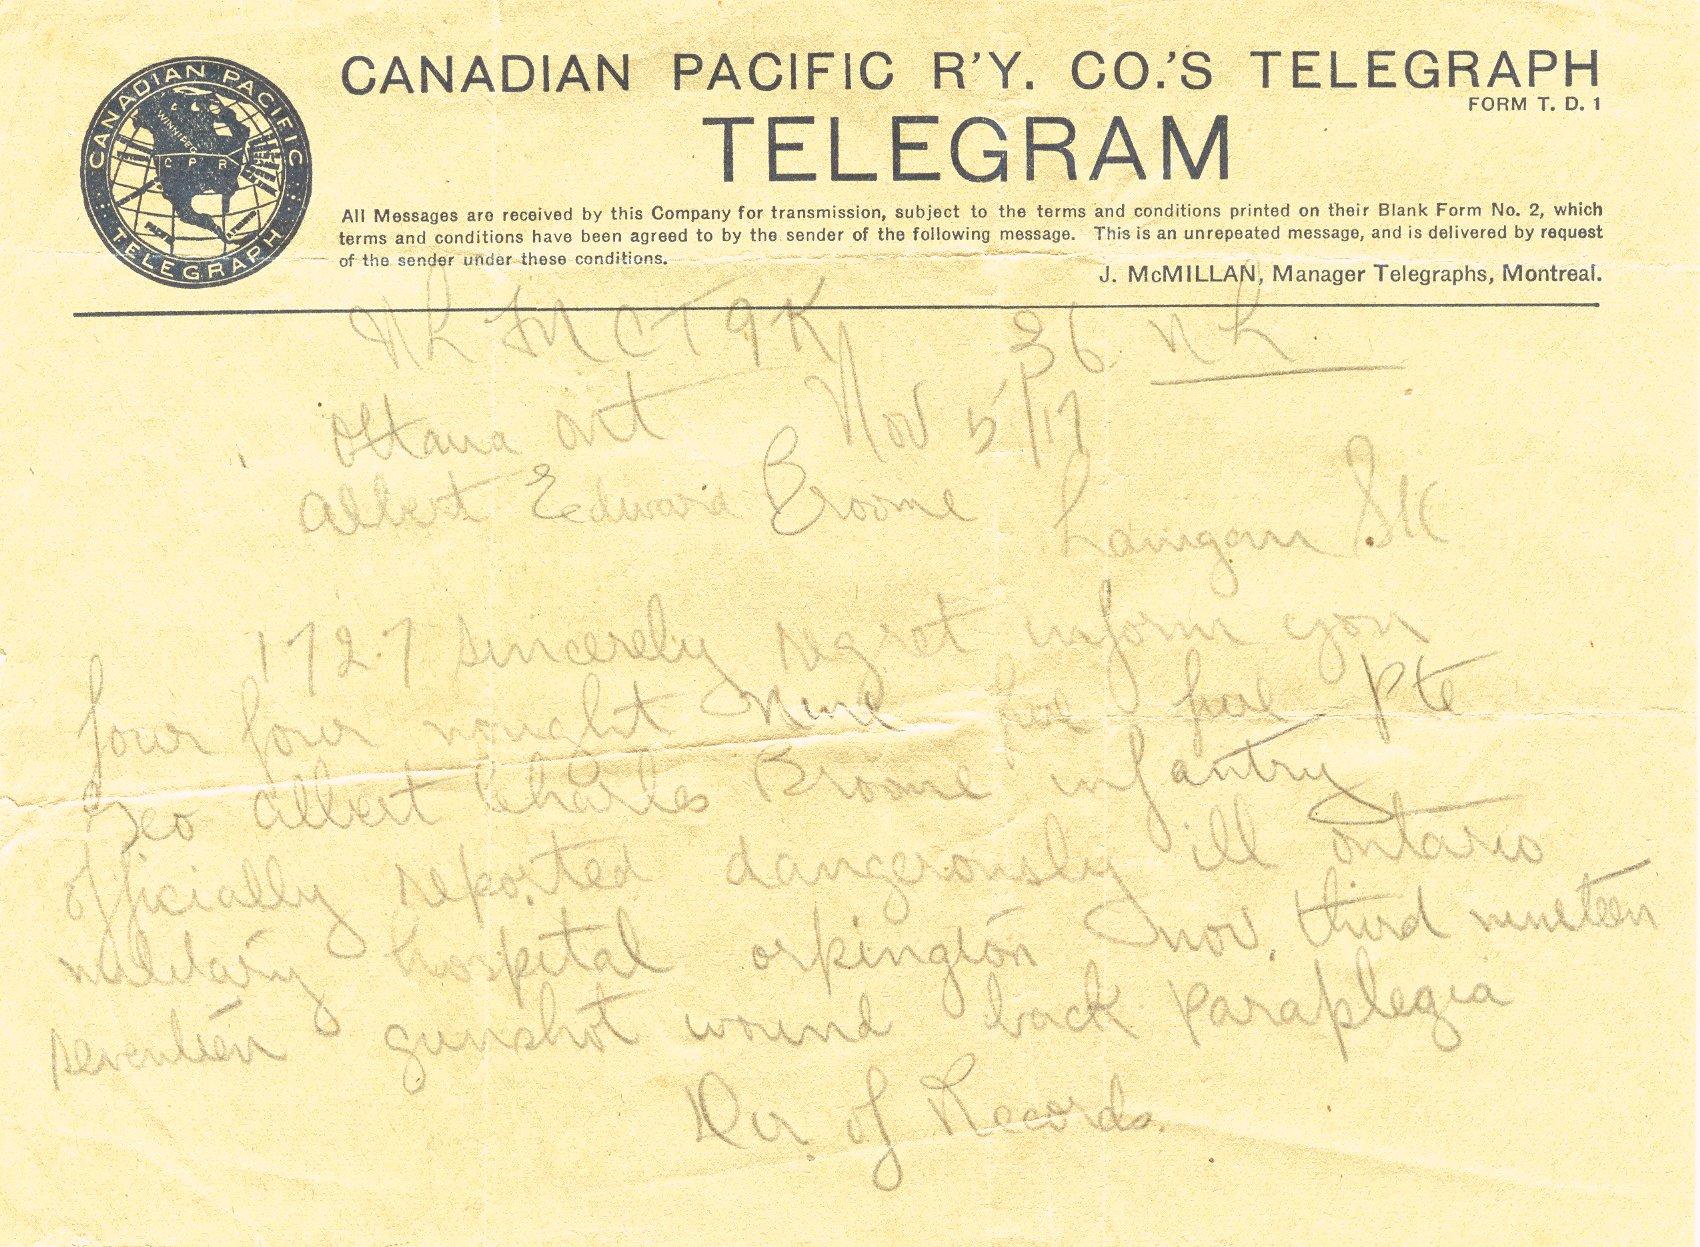 CANADIAN PACIFIC R'Y. CO.'S TELEGRAPH
FORM T. D. 1
TELEGRAM
CANADIAN PACIFIC
WINNIPEG
C P R
TELEGRAPH
All Messages are received by this Company for transmission, subject to the terms and conditions printed on their Blank Form No. 2, which
terms and conditions have been agreed to by the sender of the following message. This is an unrepeated message, and is delivered by request
of the sender under these conditions.
J. McMILLAN, Manager Telegraphs, Montreal.
36 NL
Ottawa Ont Nov 5/17
Albert Edward Broome Lanigan SK
1727 sincerely regret inform you
four four nought nine five five Pte
Geo Albert Charles Broome infantry
officially reported dangerously ill ontario
military hospital orpington Nov. third nineteen
seventeen gunshot wound back paraplegia
Dir. of Records.